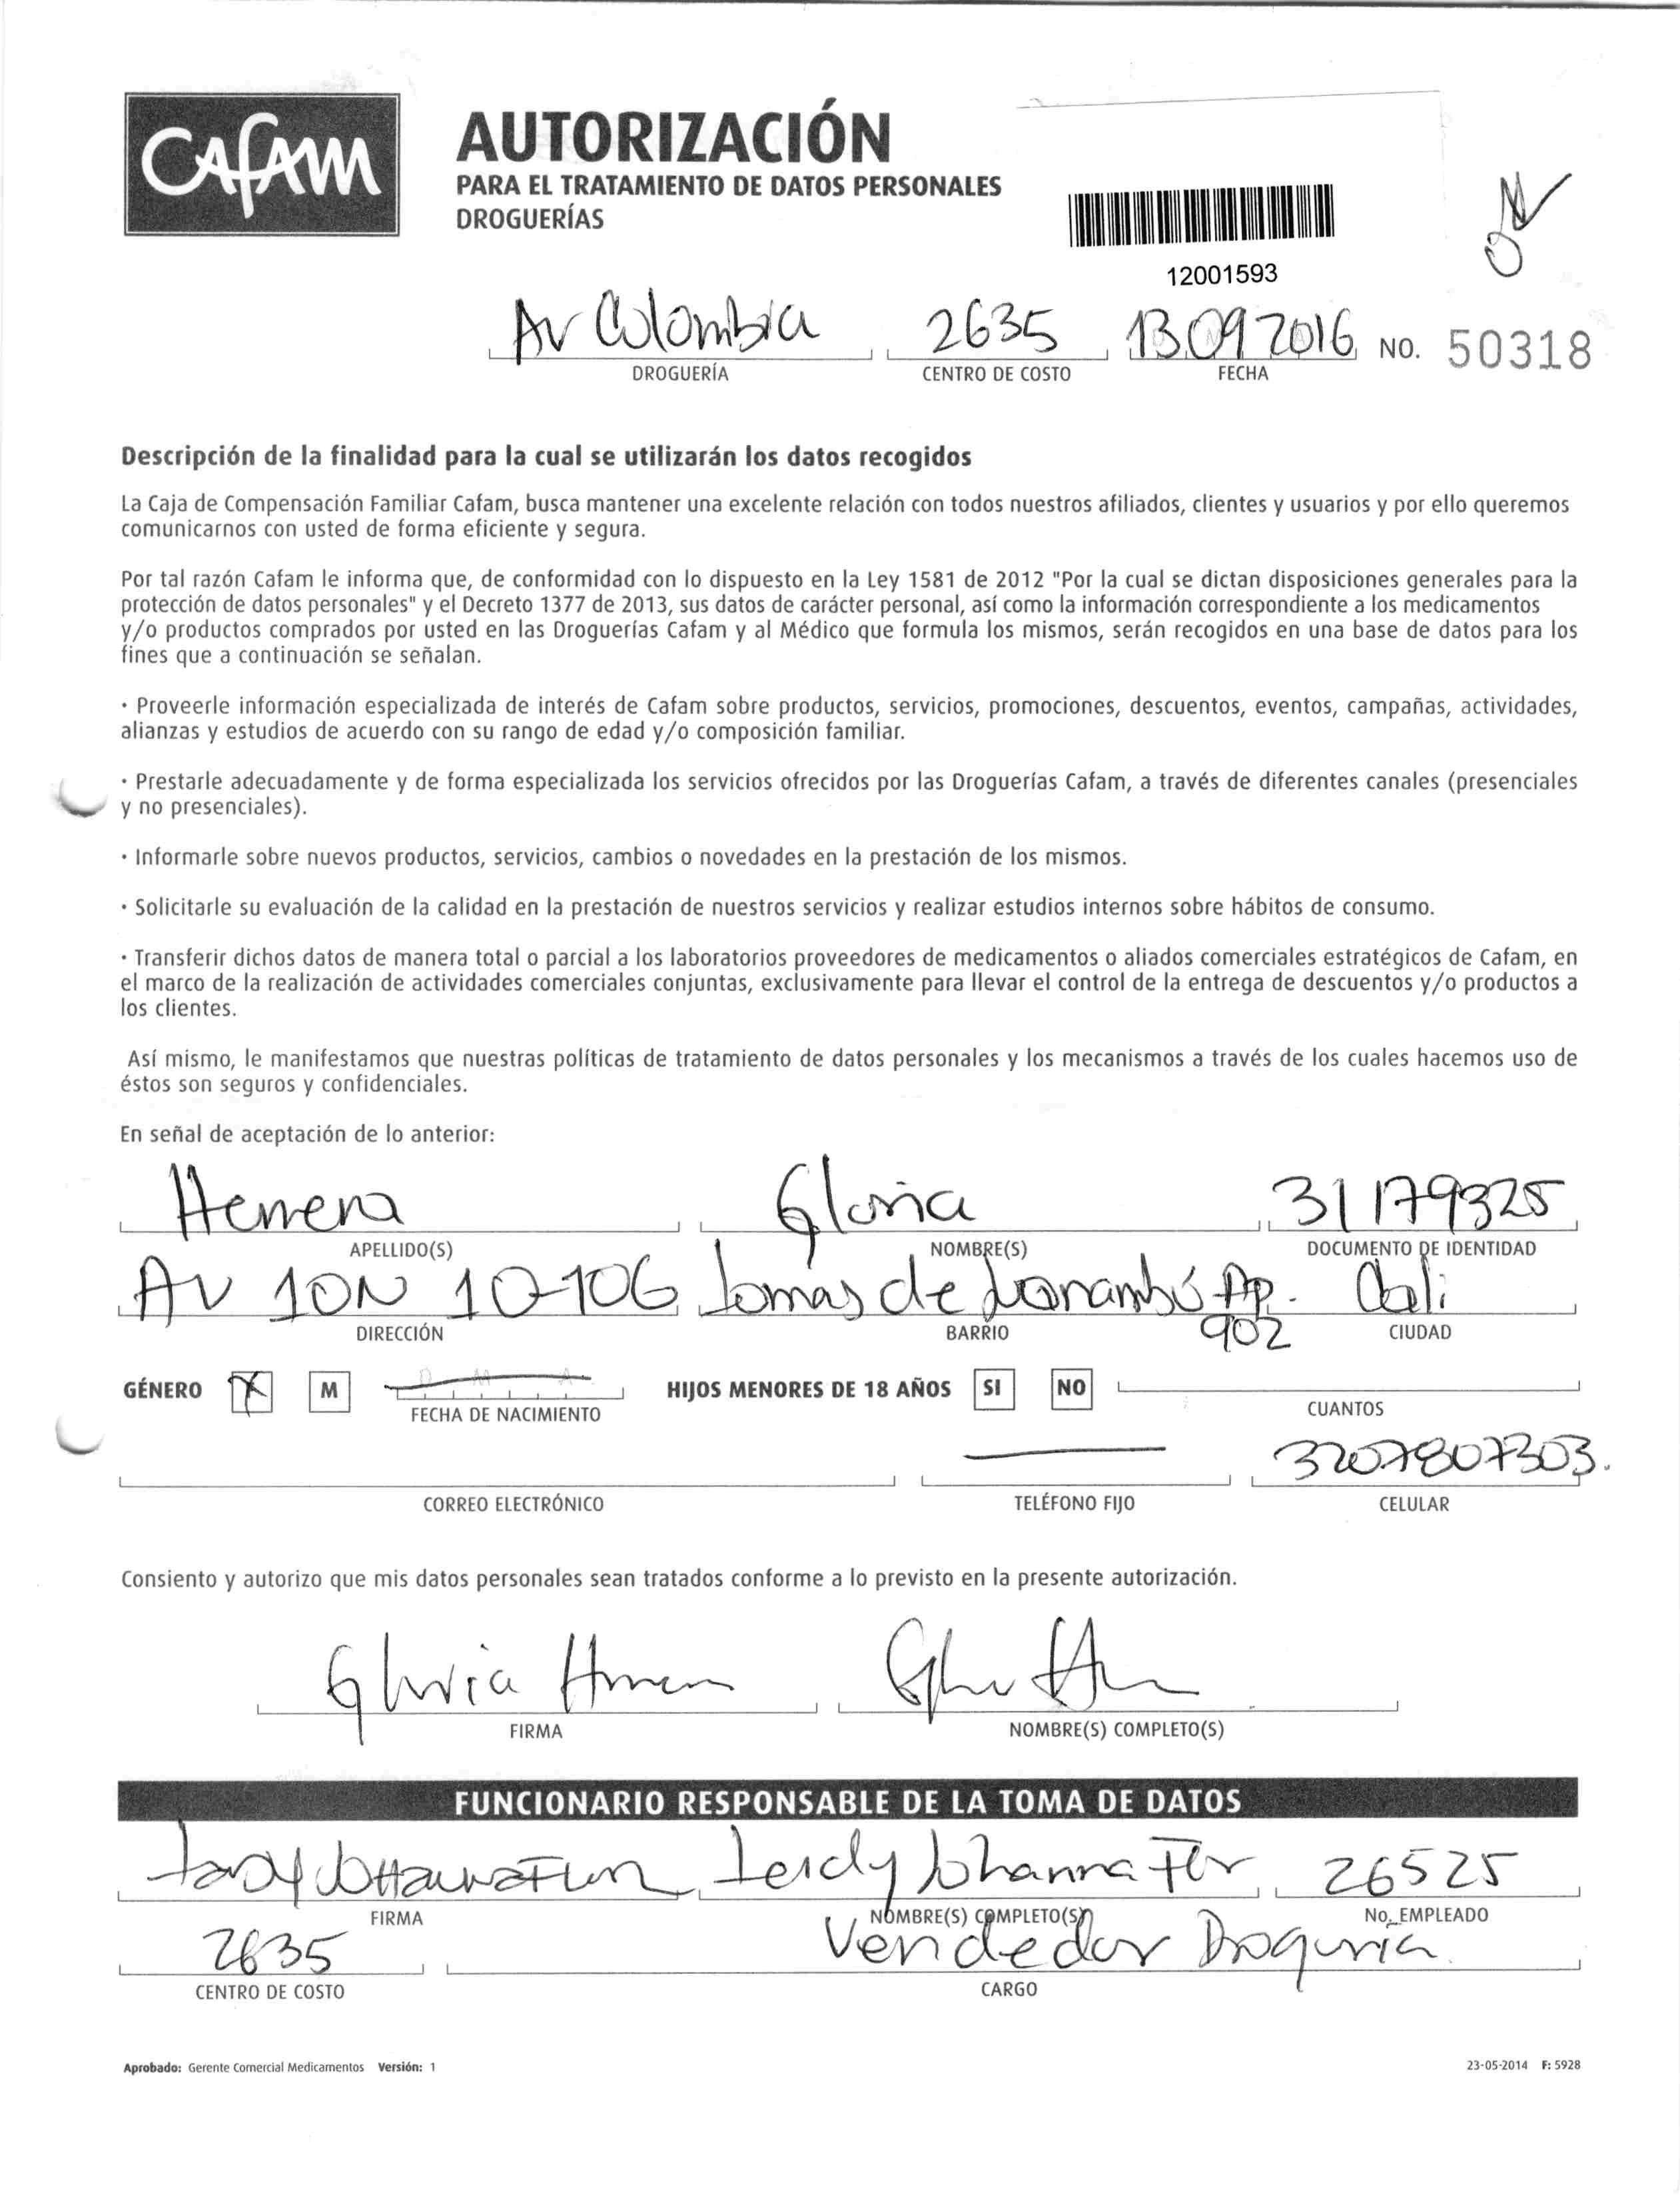 CAFAM
AUTORIZACIÓN
PARA EL TRATAMIENTO DE DATOS PERSONALES
DROGUERÍAS
12001593
Av Colombia 2635 13 09 2016 NO. 50318
DROGUERÍA CENTRO DE COSTO FECHA
Descripción de la finalidad para la cual se utilizarán los datos recogidos
La Caja de Compensación Familiar Cafam, busca mantener una excelente relación con todos nuestros afiliados, clientes y usuarios y por ello queremos
comunicarnos con usted de forma eficiente y segura.
Por tal razón Cafam le informa que, de conformidad con lo dispuesto en la Ley 1581 de 2012 "Por la cual se dictan disposiciones generales para la
protección de datos personales" y el Decreto 1377 de 2013, sus datos de carácter personal, así como la información correspondiente a los medicamentos
y/o productos comprados por usted en las Droguerías Cafam y al Médico que formula los mismos, serán recogidos en una base de datos para los
fines que a continuación se señalan.
· Proveerle información especializada de interés de Cafam sobre productos, servicios, promociones, descuentos, eventos, campañas, actividades,
alianzas y estudios de acuerdo con su rango de edad y/o composición familiar.
· Prestarle adecuadamente y de forma especializada los servicios ofrecidos por las Droguerías Cafam, a través de diferentes canales (presenciales
y no presenciales).
· Informarle sobre nuevos productos, servicios, cambios o novedades en la prestación de los mismos.
· Solicitarle su evaluación de la calidad en la prestación de nuestros servicios y realizar estudios internos sobre hábitos de consumo.
· Transferir dichos datos de manera total o parcial a los laboratorios proveedores de medicamentos o aliados comerciales estratégicos de Cafam, en
el marco de la realización de actividades comerciales conjuntas, exclusivamente para llevar el control de la entrega de descuentos y/o productos a
los clientes.
Así mismo, le manifestamos que nuestras políticas de tratamiento de datos personales y los mecanismos a través de los cuales hacemos uso de
éstos son seguros y confidenciales.
En señal de aceptación de lo anterior:
Herrera Gloria 31179325
APELLIDO(S) NOMBRE(S) DOCUMENTO DE IDENTIDAD
AV 10N 10-106 Lomas de Ap. Cali
902
DIRECCIÓN BARRIO CIUDAD
GÉNERO X M HIJOS MENORES DE 18 AÑOS SI NO
FECHA DE NACIMIENTO CUANTOS
3207807303.
CORREO ELECTRÓNICO TELÉFONO FIJO CELULAR
Consiento y autorizo que mis datos personales sean tratados conforme a lo previsto en la presente autorización.
Gloria Herrera
FIRMA NOMBRE(S) COMPLETO(S)
FUNCIONARIO RESPONSABLE DE LA TOMA DE DATOS
Leidy Johanna 26525
FIRMA NOMBRE(S) COMPLETO(S) No. EMPLEADO
2635 Vendedor Drogueria
CENTRO DE COSTO CARGO
Aprobado: Gerente Comercial Medicamentos Versión: 1 23-05-2014 F: 5928